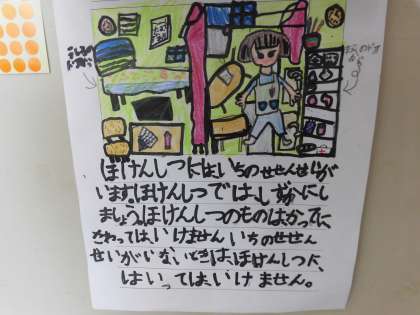 ほけんしつには、いちのせせんせいが
います。ほけんしつでは、しずかにし
ましょう。ほけんしつのものはかってに
さわってはいけません いちのせせん
せいがいないときは、ほけんしつに、
はいってはいけません。